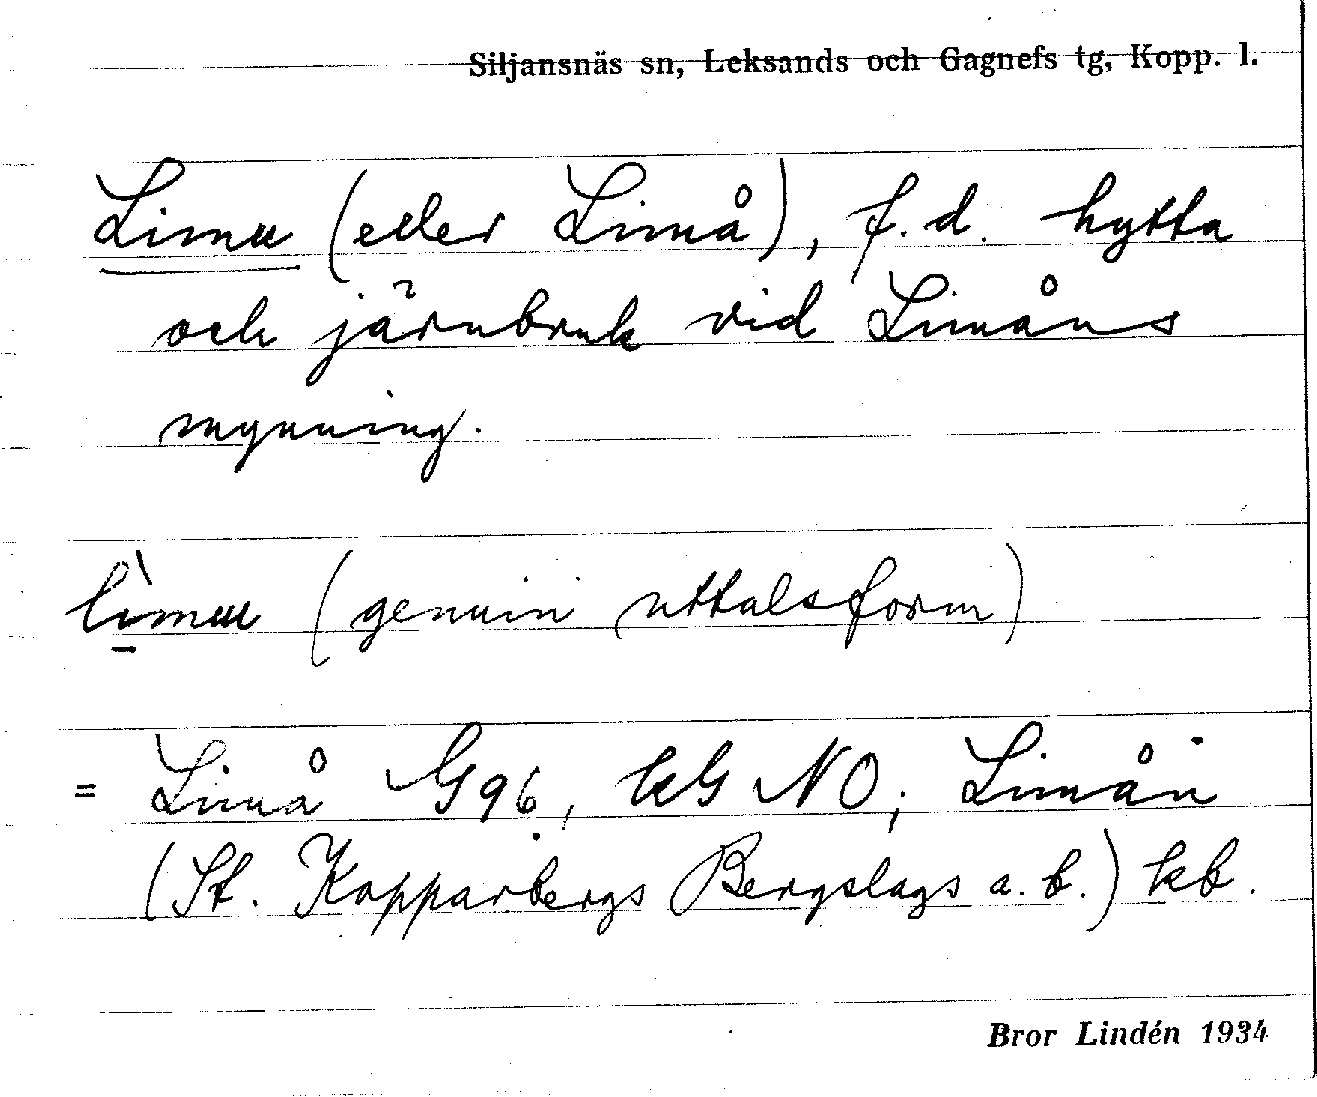 Siljansnäs sn, Leksands och Gagnefs tg, Kopp. l.
Limu (eller Limå), f.d. hytta
och järnbruk vid Limåns
mynning.
lìmu (genuin uttalsform)
= Limå G96, kG NO; Limån
(St. Kopparbergs Bergslags a.b.) kb.
Bror Lindén 1934